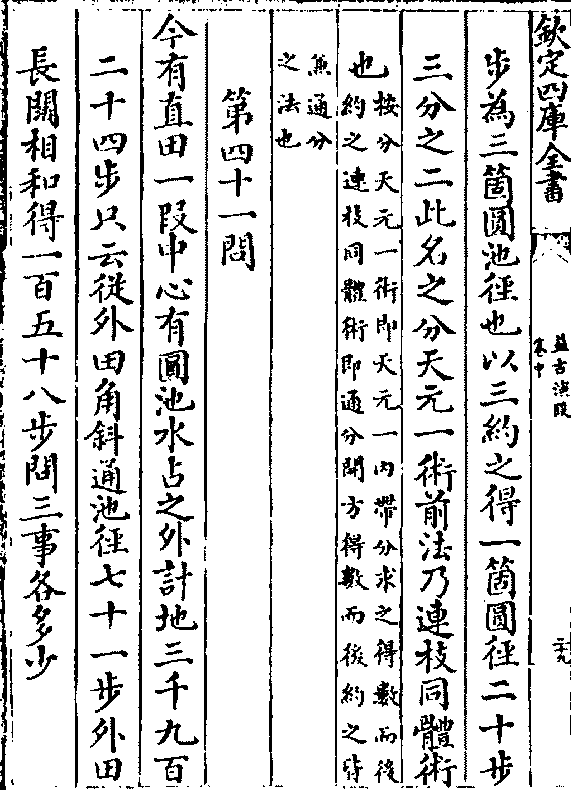 欽定四庫全書
益古演段
卷中
二九
步為三箇圓池徑也以三約之得一箇圓徑二十步
三分之二此名之分天元一術前法乃連枝同體術
也按分天元一術即天元一內帶分求之得數而後
約之連枝同體術即通分開方得數而後約之皆
無通分
之法也
第四十一問
今有直田一段中心有圓池水占之外計地三千九百
二十四步只云從外田角斜通池徑七十一步外田
長闊相和得一百五十八步問三事各多少